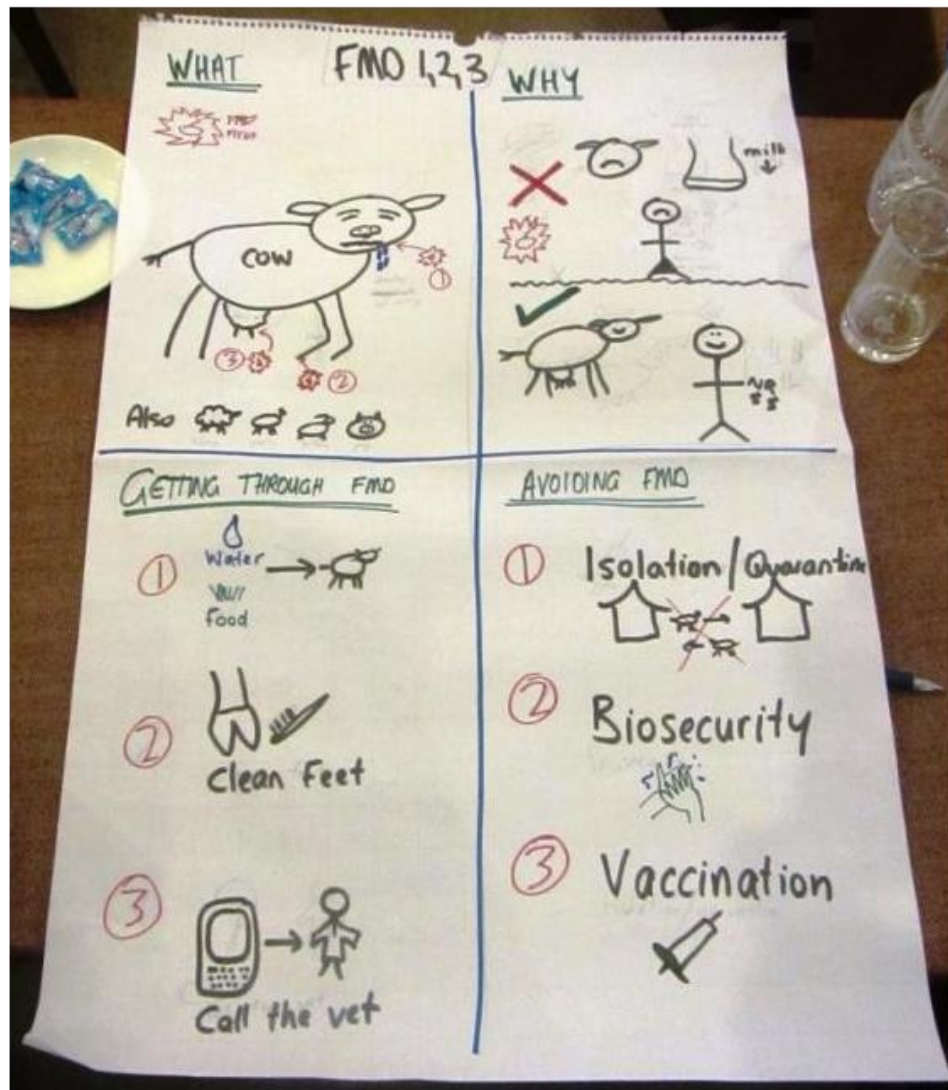 FMD 1,2,3
WHAT
COW
①
③
②
Also
WHY
milk
GETTING THROUGH FMD
①
Water
Food
②
Clean Feet
③
Call the vet
AVOIDING FMD
①
Isolation/Quarantine
②
Biosecurity
③
Vaccination